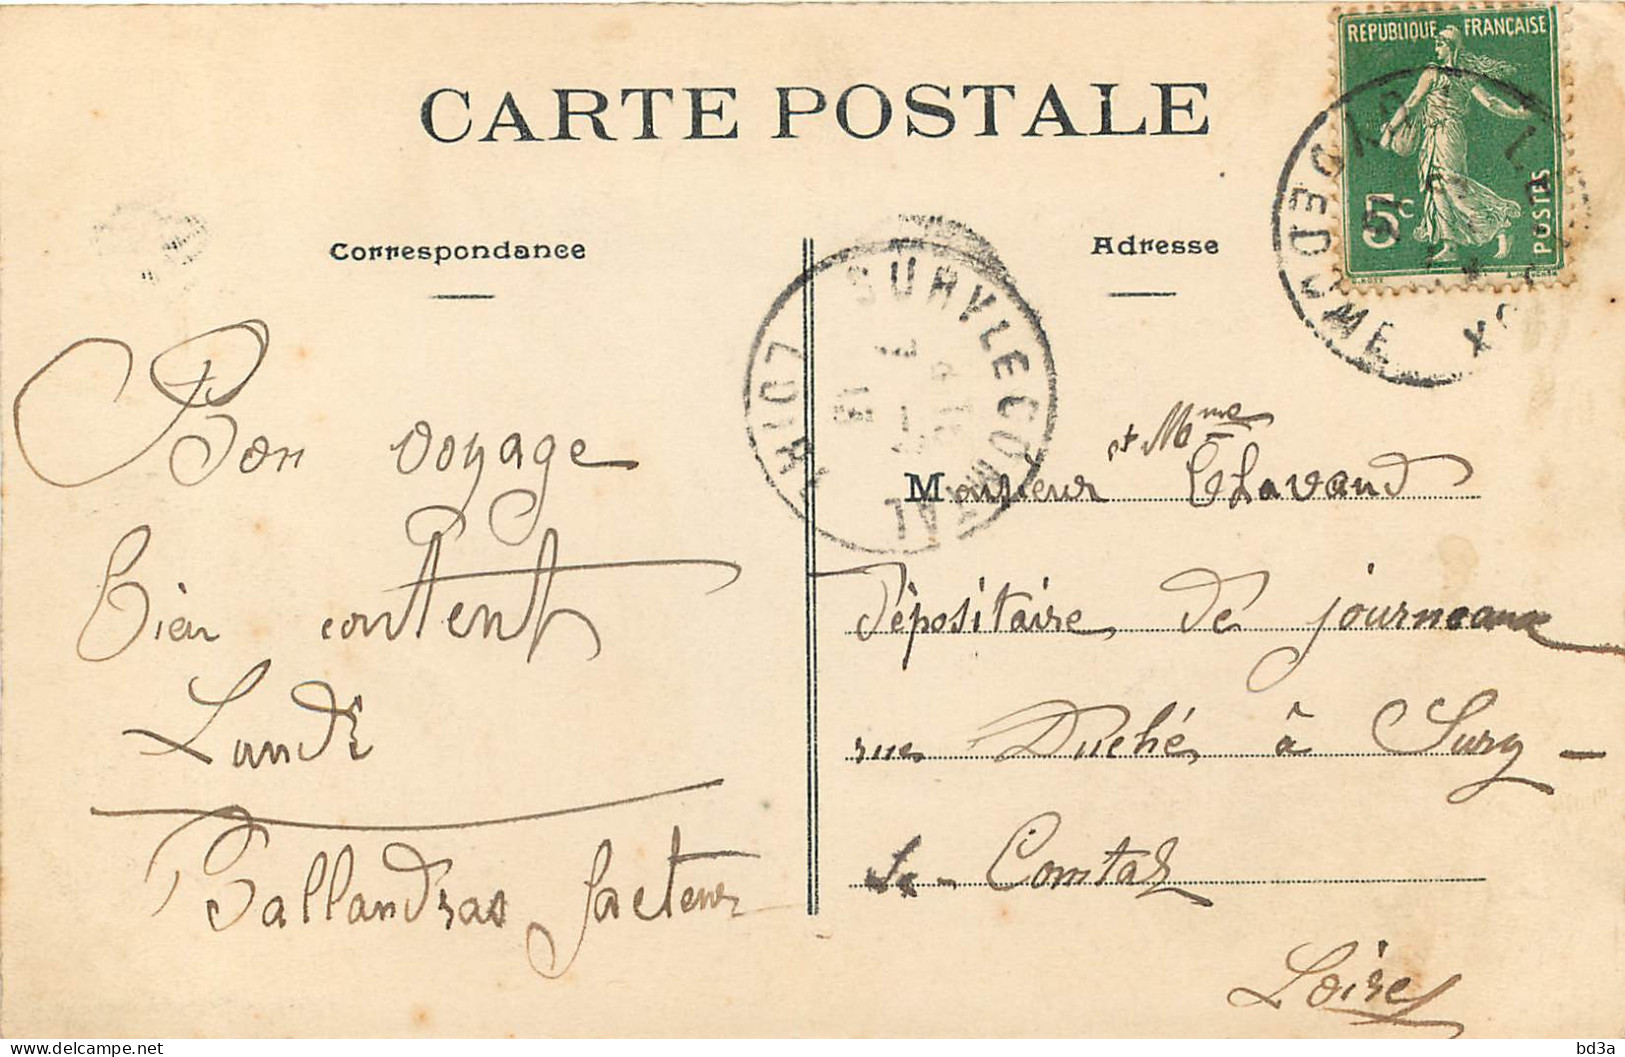 CARTE POSTALE
Correspondance
Adresse
REPUBLIQUE FRANÇAISE
5c
POSTES
PUY DE DOME
SURY LE COMTAL
LOIRE
Bon voyage
bien content
Lundi
Ballandras facteur
et Mme
Monsieur Chavand
Dépositaire de journeaux
rue Duché à Sury -
le - Comtal
Loire
bd3a